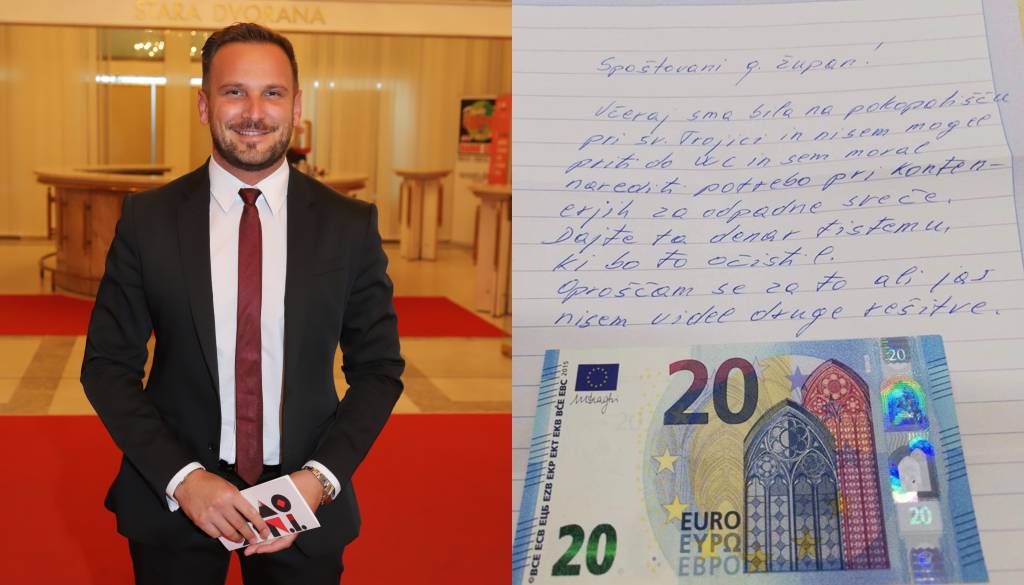 STARA DVORANA
Spoštovani g. župan!
Včeraj sma bila na pokopališču
pri sv. Trojici in nisem mogel
priti do WC in sem moral
narediti potrebo pri konten-
erjih za odpadne sveče.
Dajte ta denar tistemu,
ki bo to očistil.
Oproščam se za to ali jaz
nisem videl druge rešitve.
©BCE ECB ЕЦБ EZB EKP EKT EKB BĊE EBC 2015
20
20
20
20
EURO
ΕΥΡΩ
ЕВРО